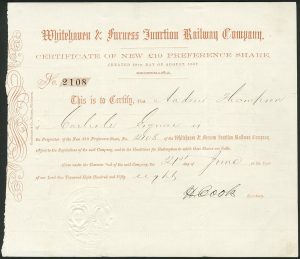 Whitehaven & Furness Junction Railway Company.
CERTIFICATE OF NEW £10 PREFERENCE SHARE,
CREATED 28TH DAY OF AUGUST 1857.
No. 2108
This is to Certify, that Andrew Thompson
of Carlisle Esquire is
the Proprietor of the New £10 Preference Share, No. 2108 of the Whitehaven & Furness Junction Railway Company,
subject to the Regulations of the said Company, and to the Conditions for Redemption to which that Shares are liable.
Given under the Common Seal of the said Company, the 21st day of June in the Year
of our Lord One Thousand Eight Hundred and Fifty
eight
H Cook
Secretary.